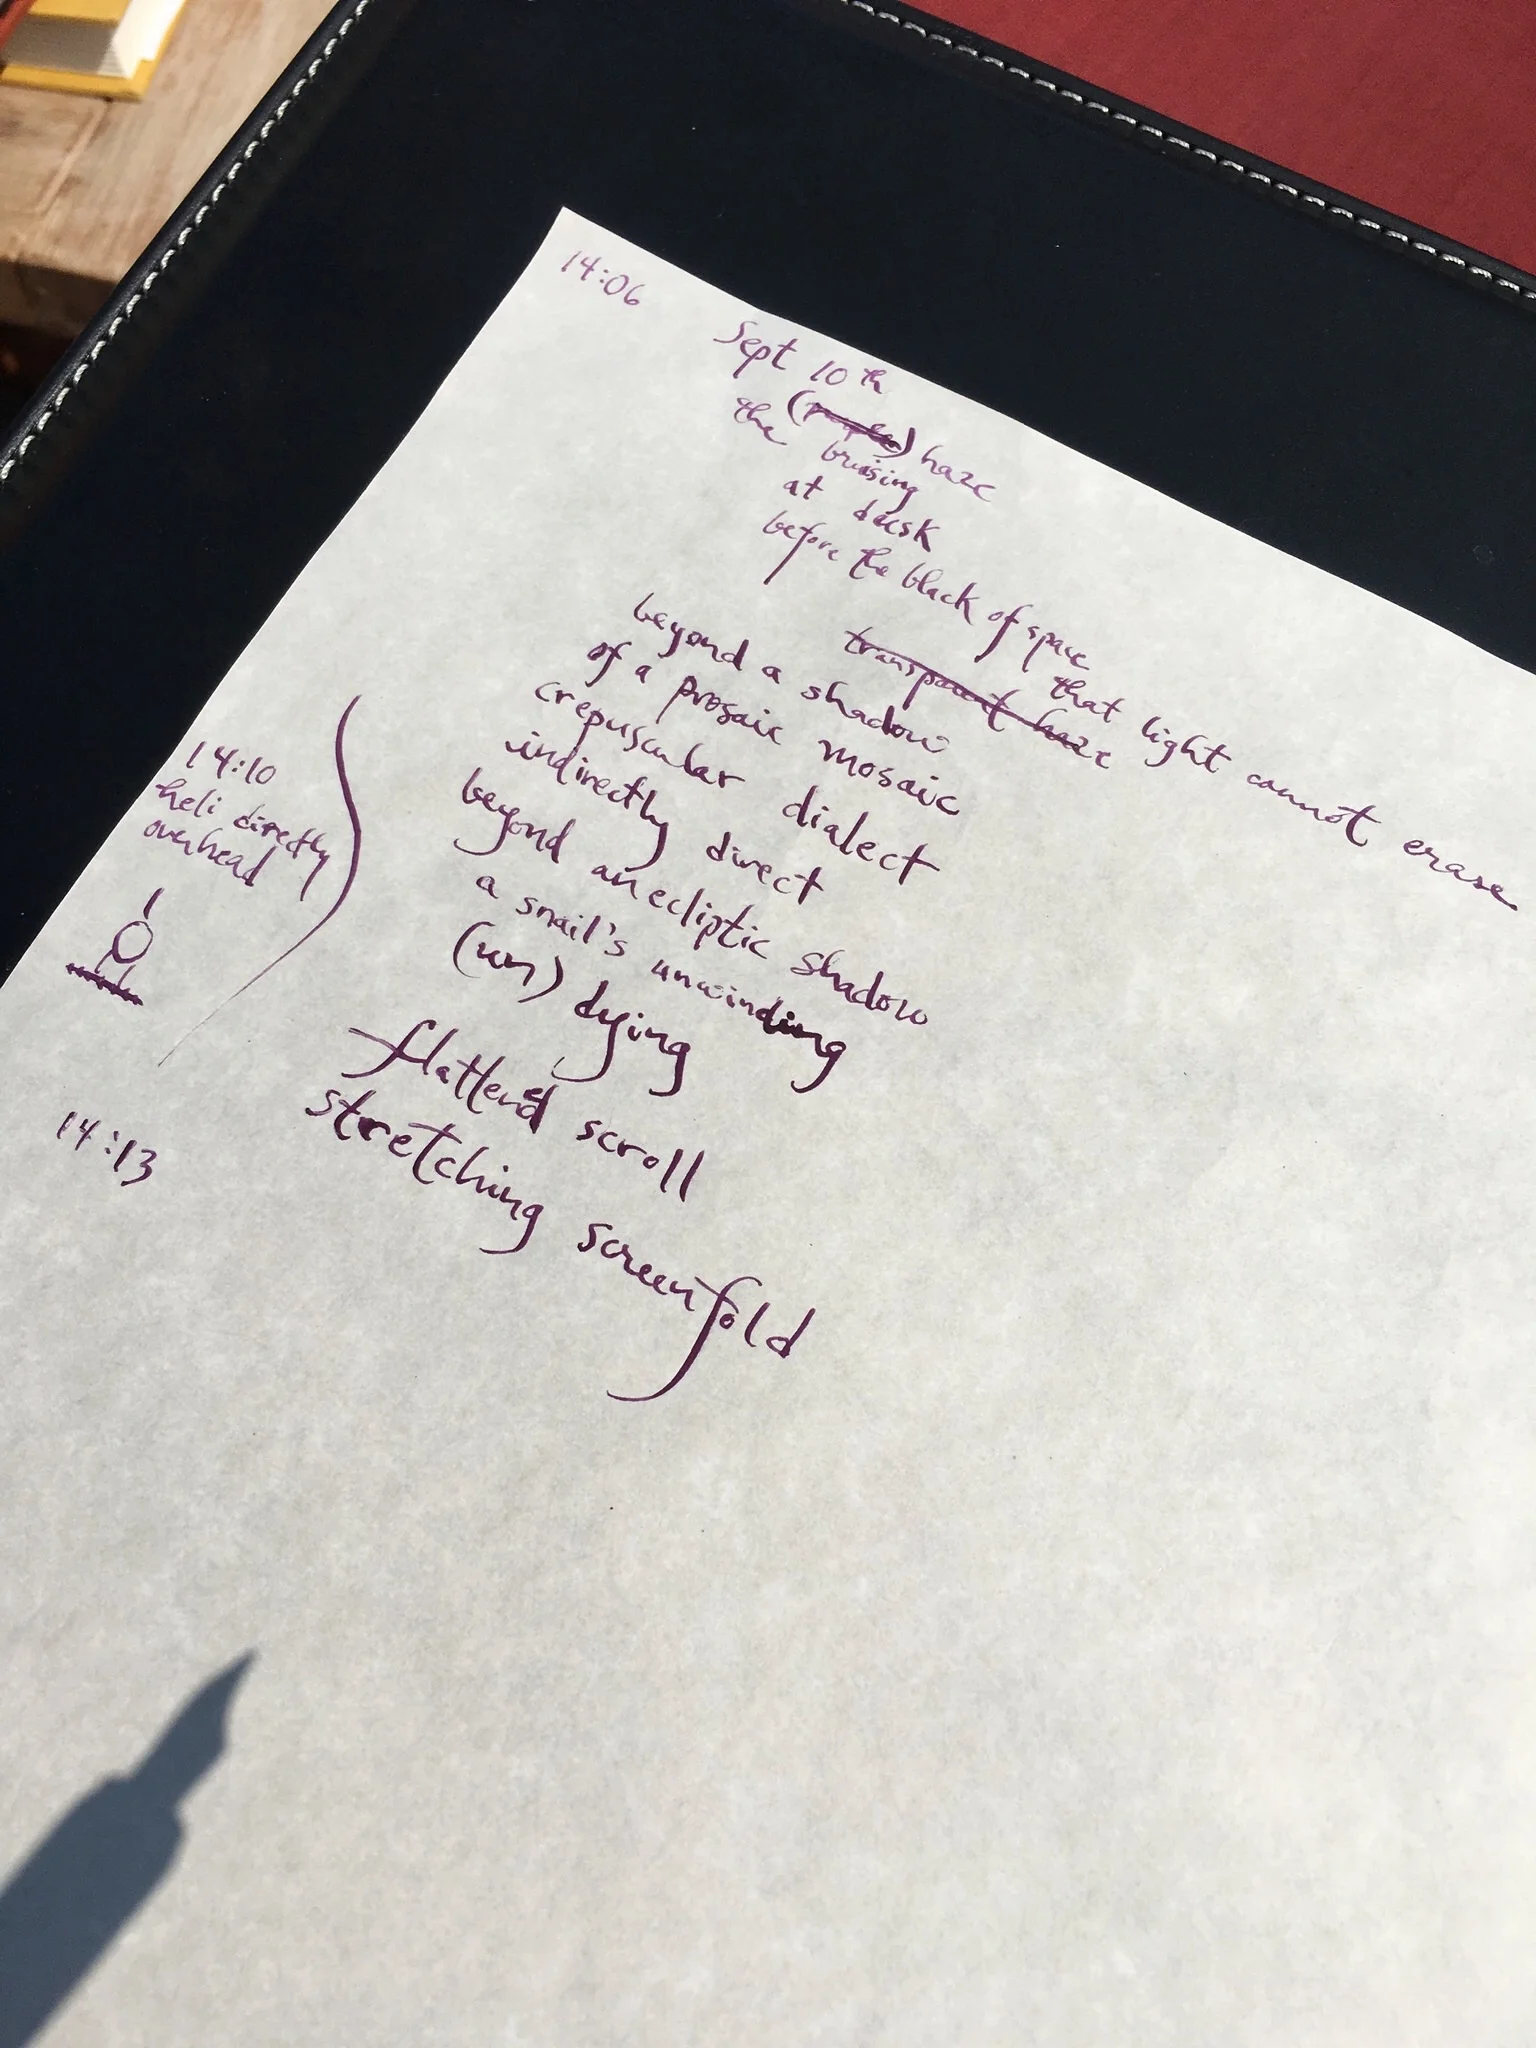 14:06
Sept 10th
the haze
bruising
at dusk
before the black of space
that light cannot erase
transparent haze
beyond a shadow
of a prosaic mosaic
crepuscular dialect
indirectly direct
beyond an ecliptic shadow
a snail's unwinding
(un) dying
flattened scroll
stretching screenfold
14:10
heli directly
overhead
14:13